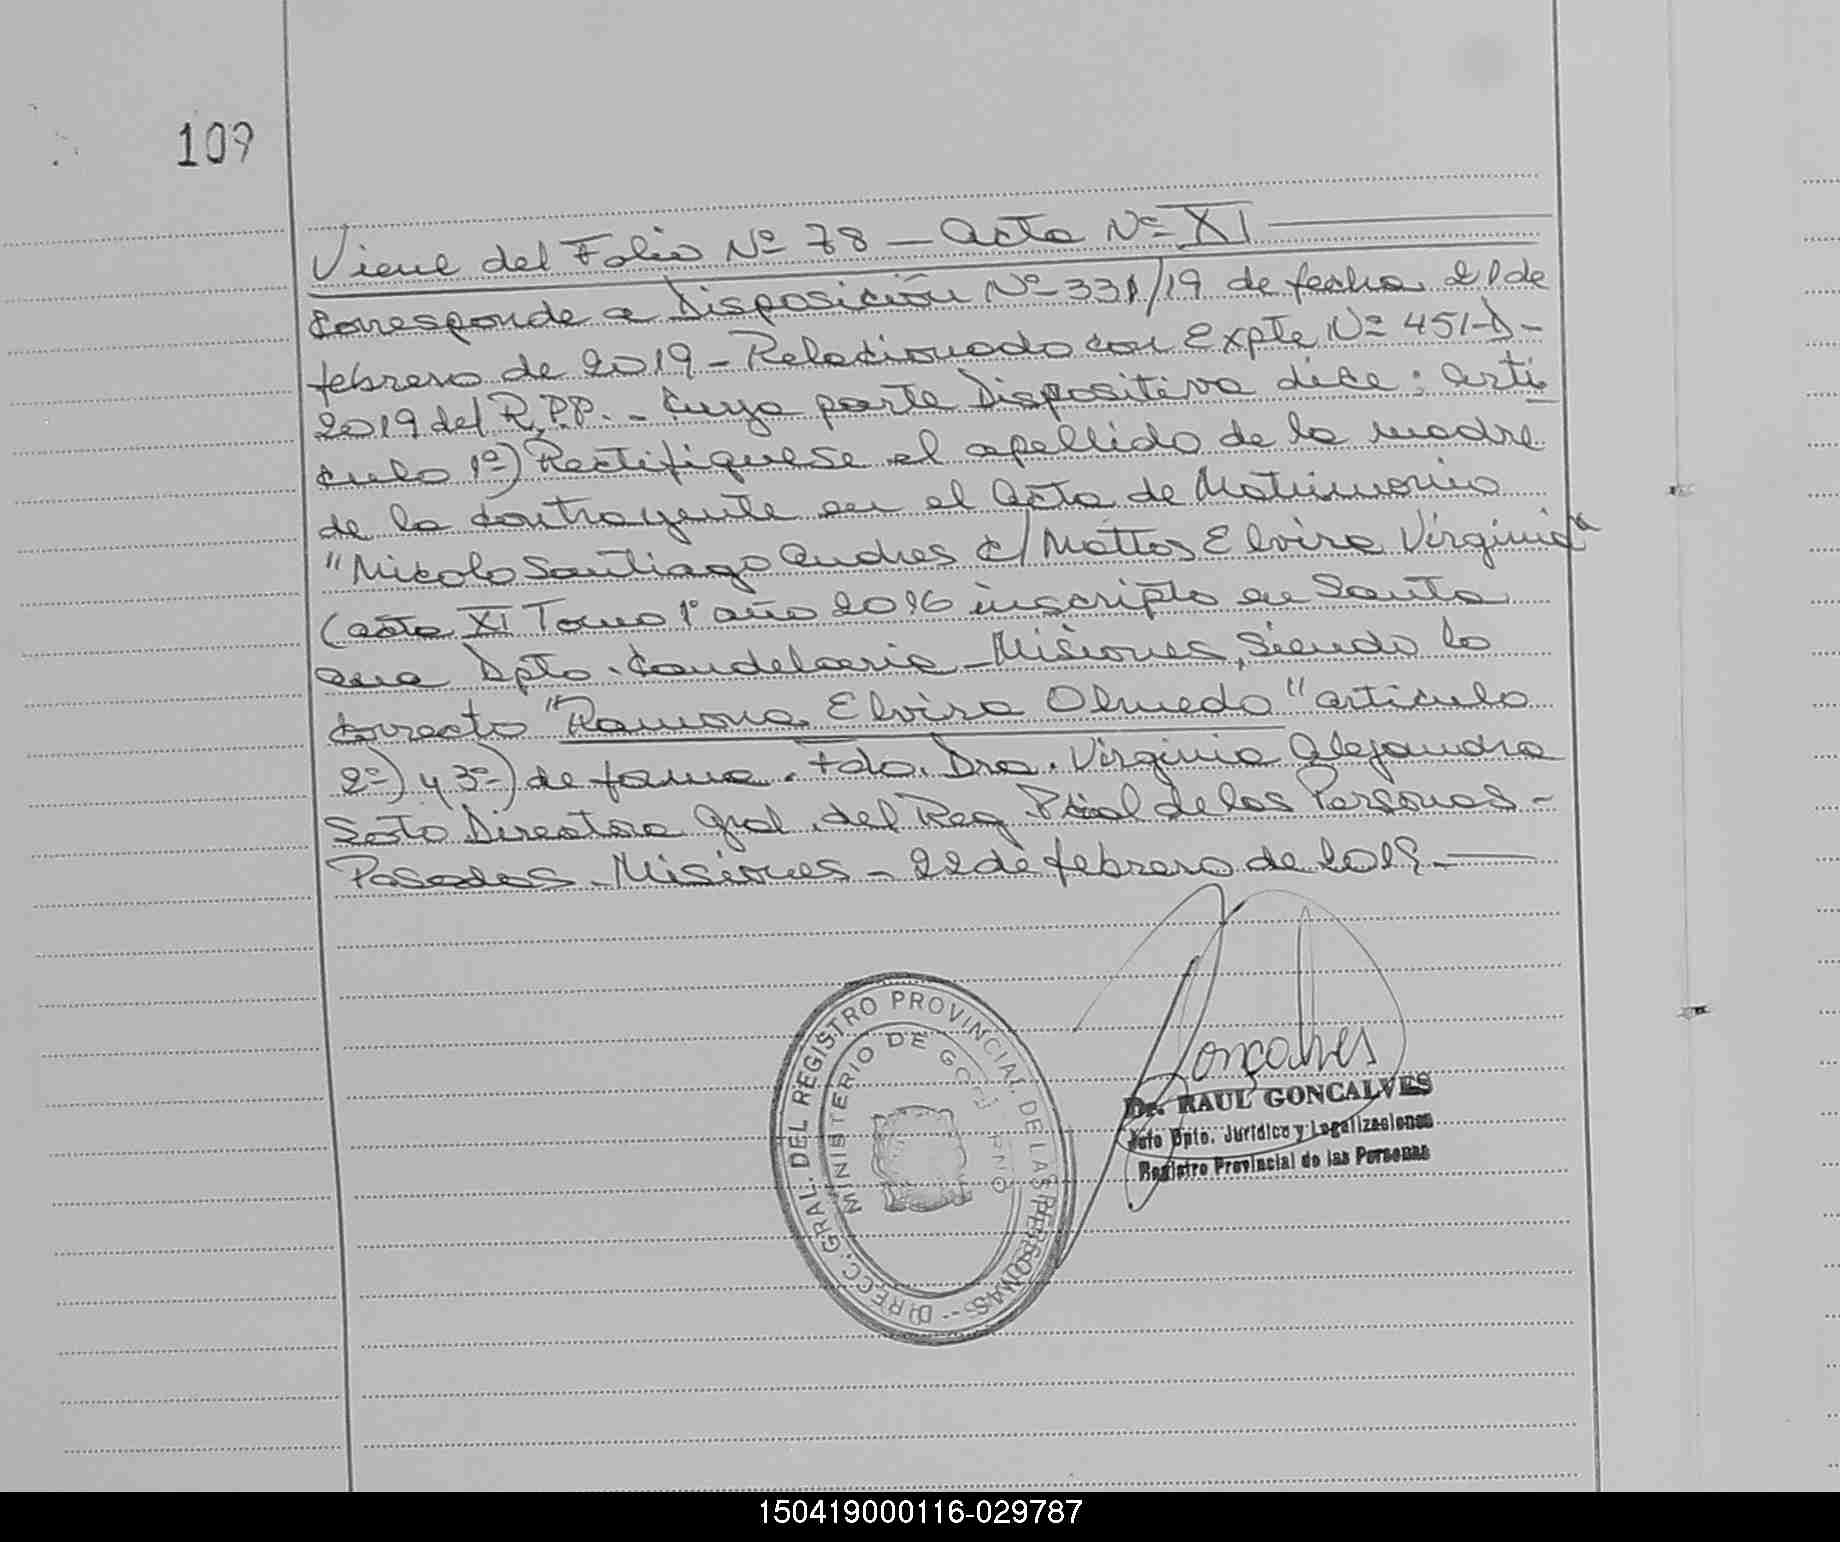 109
Viene del Folio Nº 78 - Acta Nº XI
Corresponde a Disposición Nº 331/19 de fecha 21 de
febrero de 2019 - Relacionado con Expte Nº 451-D-
2019 del R.P.P. - Cuya parte Dispositiva dice: Arti-
culo 1º) Rectifiquese el apellido de la madre
de la contrayente en el Acta de Matrimonio
"Micolo Santiago Andres c/ Mattos Elvira Virginia"
(acta XI Tomo 1º año 2016 inscripto en Santa
Ana Dpto. Candelaria - Misiones, siendo lo
correcto "Ramona Elvira Olmedo" articulo
2º) y 3º) de forma. Fdo. Dra. Virginia Alejandra
Soto Directora Gral. del Reg. Pcial de las Personas -
Posadas - Misiones - 22 de febrero de 2019.
DIRECC. GRAL. DEL REGISTRO PROVINCIAL DE LAS PERSONAS -
MINISTERIO DE GOBIERNO
Goncalves
Dr. RAUL GONCALVES
Jefe Dpto. Jurídico y Legalizaciones
Registro Provincial de las Personas
150419000116-029787